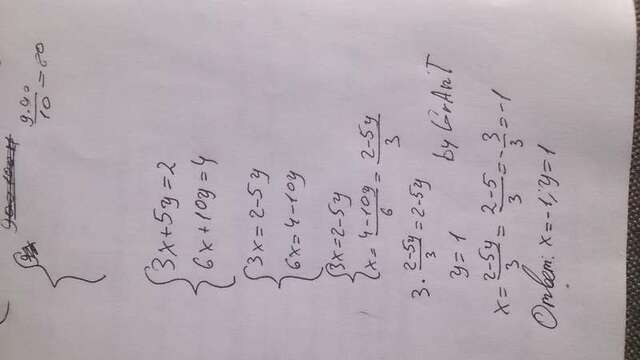 9·40/10=80
3x+5y=2
6x+10y=4
3x=2-5y
6x=4-10y
3x=2-5y
x=4-10y/6=2-5y/3
3·2-5y/3=2-5y
y=1 by GrAnT
x=2-5y/3=2-5/3=-3/3=-1
Ответ: x=-1; y=1